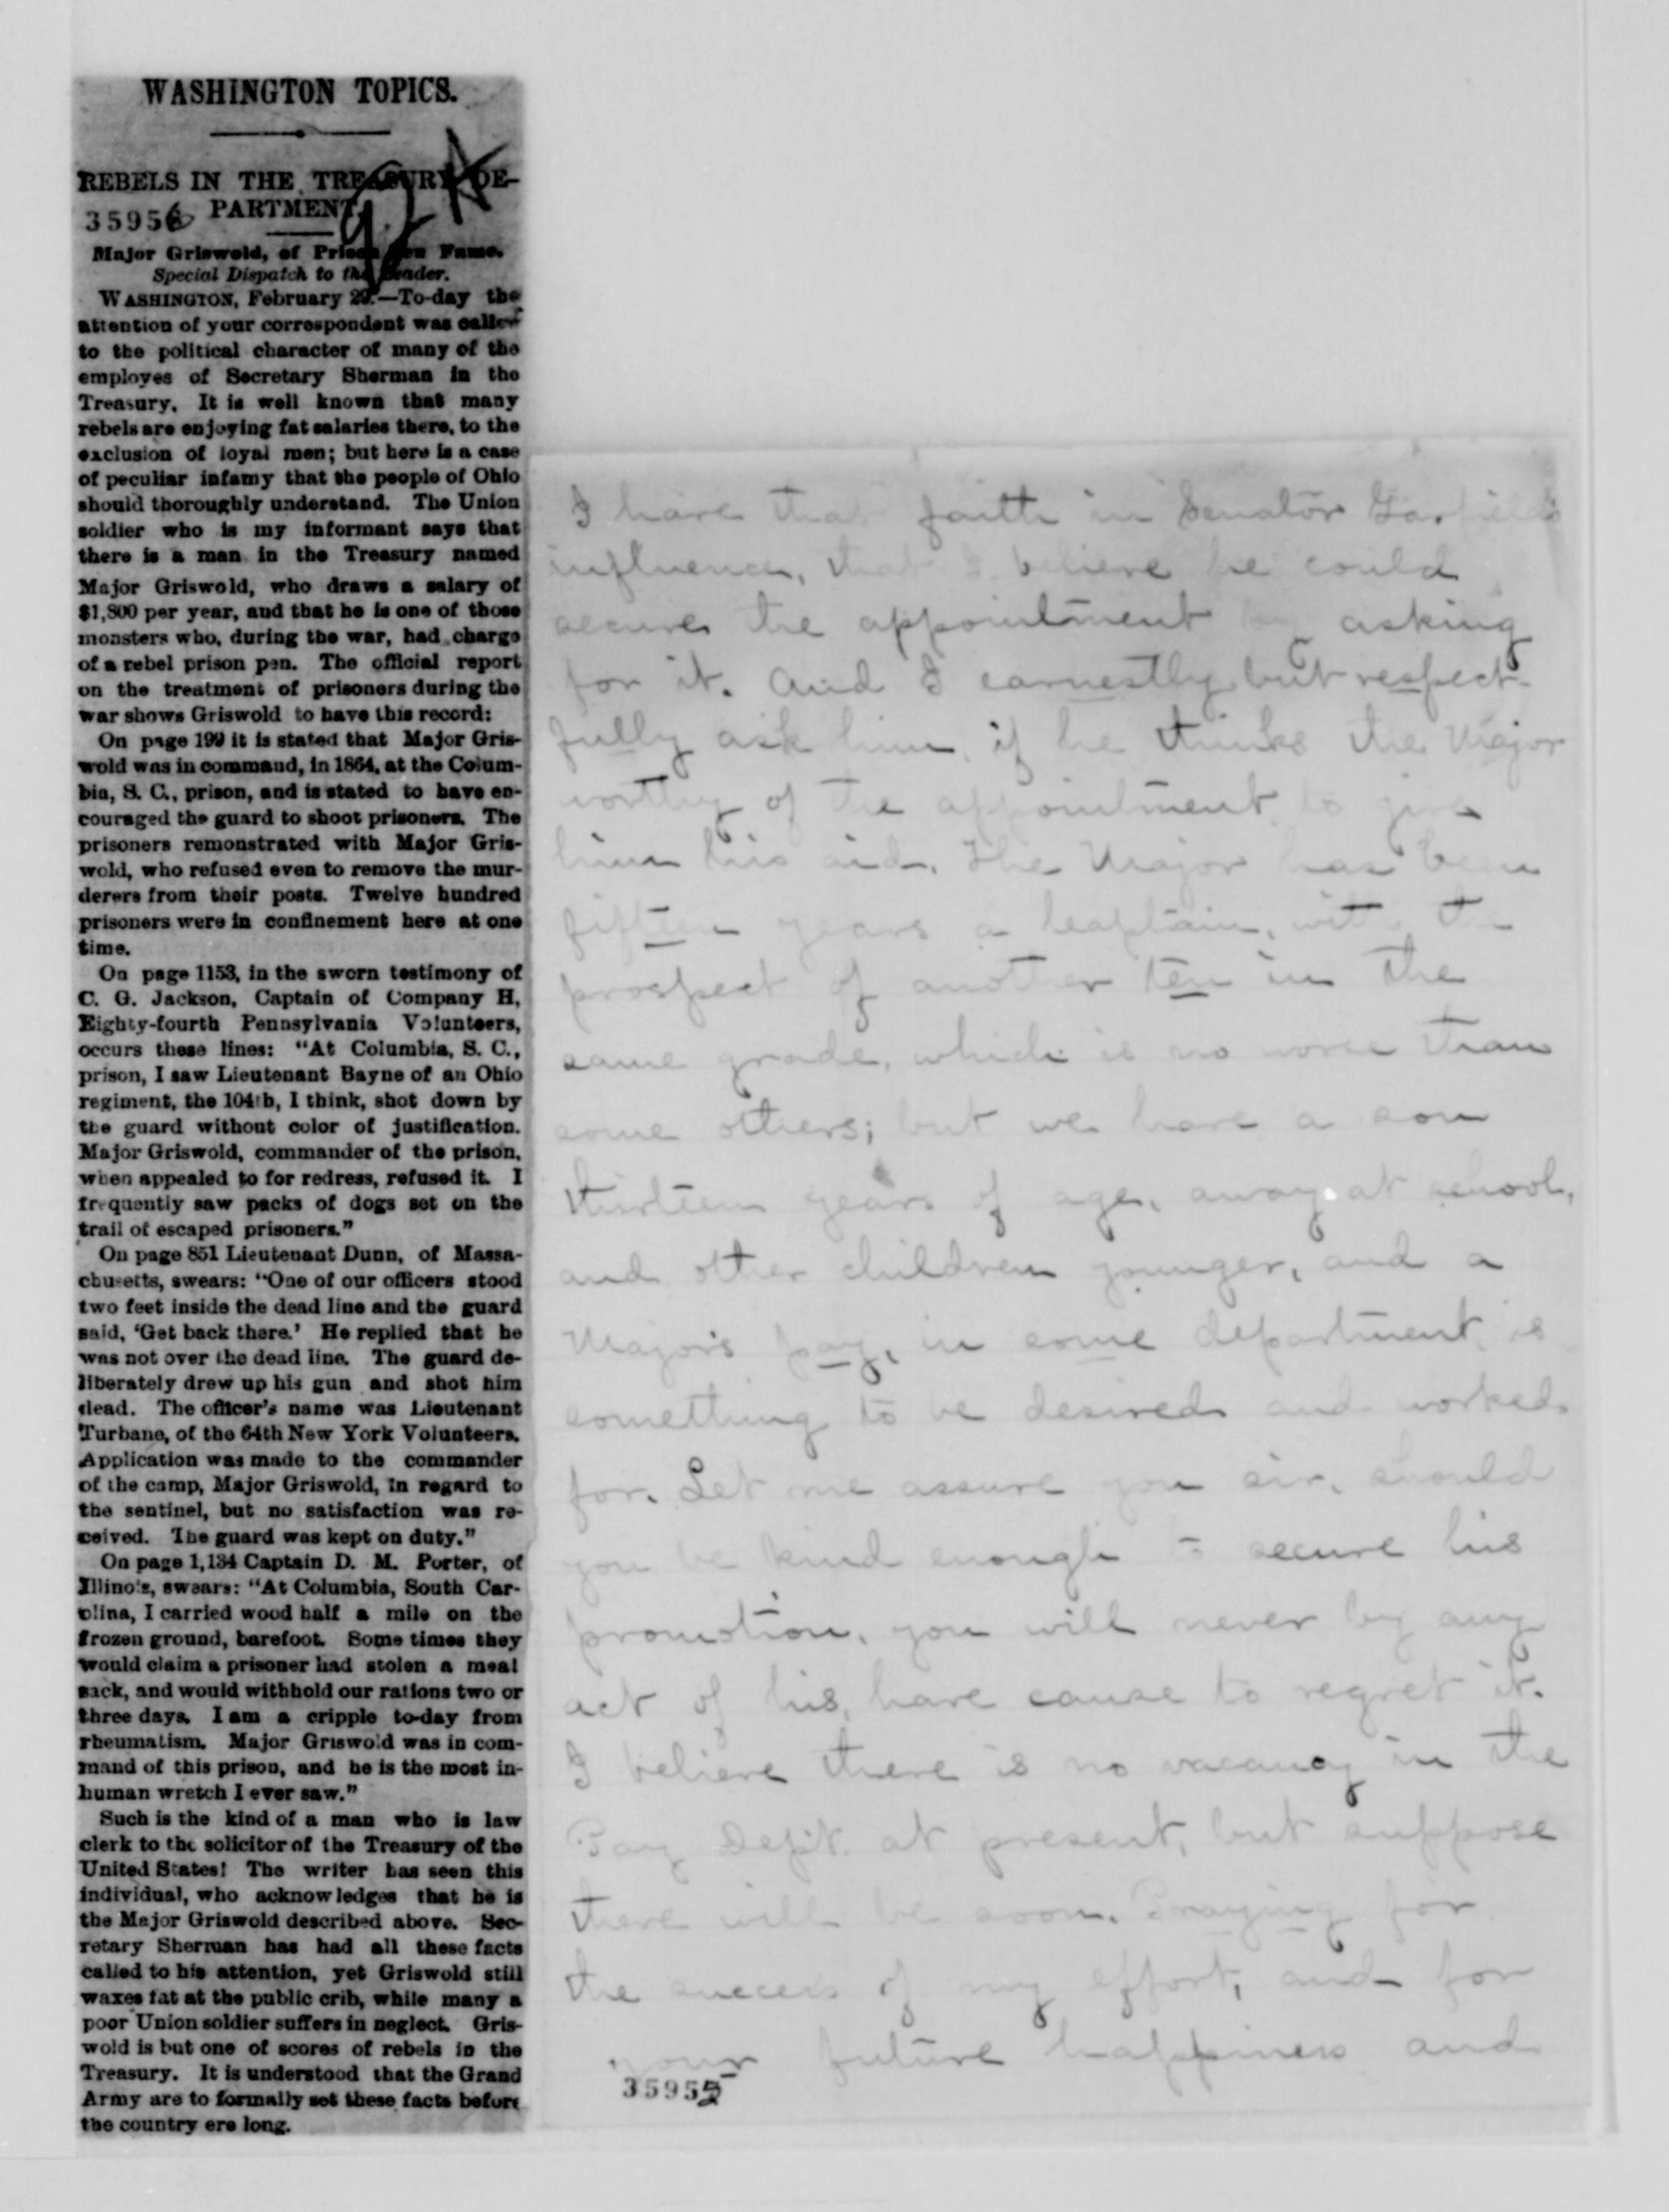 WASHINGTON TOPICS.
REBELS IN THE TREASURY DE-
PARTMENT.
35956
Major Griswold, of Prison Pen Fame.
Special Dispatch to the Leader.
WASHINGTON, February 29.—To-day the
attention of your correspondent was called
to the political character of many of the
employes of Secretary Sherman in the
Treasury. It is well known that many
rebels are enjoying fat salaries there, to the
exclusion of loyal men; but here is a case
of peculiar infamy that the people of Ohio
should thoroughly understand. The Union
soldier who is my informant says that
there is a man in the Treasury named
Major Griswold, who draws a salary of
$1,800 per year, and that he is one of those
monsters who, during the war, had charge
of a rebel prison pen. The official report
on the treatment of prisoners during the
war shows Griswold to have this record:
On page 199 it is stated that Major Gris-
wold was in command, in 1864, at the Colum-
bia, S. C., prison, and is stated to have en-
couraged the guard to shoot prisoners. The
prisoners remonstrated with Major Gris-
wold, who refused even to remove the mur-
derers from their posts. Twelve hundred
prisoners were in confinement here at one
time.
On page 1153, in the sworn testimony of
C. G. Jackson, Captain of Company H,
Eighty-fourth Pennsylvania Volunteers,
occurs these lines: "At Columbia, S. C.,
prison, I saw Lieutenant Bayne of an Ohio
regiment, the 104th, I think, shot down by
the guard without color of justification.
Major Griswold, commander of the prison,
when appealed to for redress, refused it. I
frequently saw packs of dogs set on the
trail of escaped prisoners."
On page 851 Lieutenant Dunn, of Massa-
chusetts, swears: "One of our officers stood
two feet inside the dead line and the guard
said, 'Get back there.' He replied that he
was not over the dead line. The guard de-
liberately drew up his gun and shot him
dead. The officer's name was Lieutenant
Turbane, of the 64th New York Volunteers.
Application was made to the commander
of the camp, Major Griswold, in regard to
the sentinel, but no satisfaction was re-
ceived. The guard was kept on duty."
On page 1,134 Captain D. M. Porter, of
Illinois, swears: "At Columbia, South Car-
olina, I carried wood half a mile on the
frozen ground, barefoot. Some times they
would claim a prisoner had stolen a meal
sack, and would withhold our rations two or
three days. I am a cripple to-day from
rheumatism. Major Griswold was in com-
mand of this prison, and he is the most in-
human wretch I ever saw."
Such is the kind of a man who is law
clerk to the solicitor of the Treasury of the
United States! The writer has seen this
individual, who acknowledges that he is
the Major Griswold described above. Sec-
retary Sherman has had all these facts
called to his attention, yet Griswold still
waxes fat at the public crib, while many a
poor Union soldier suffers in neglect. Gris-
wold is but one of scores of rebels in the
Treasury. It is understood that the Grand
Army are to formally set these facts before
the country ere long.
I have that faith in Senator Garfield's
influence, that I believe he could
secure the appointment by asking
for it. And I earnestly but respect-
fully ask him, if he thinks the Major
worthy of the appointment, to give
him his aid. The Major has been
fifteen years a Captain, with the
prospect of another ten in the
same grade, which is no worse than
some others; but we have a son
thirteen years of age, away at school,
and other children younger, and a
Major's pay, in some department, is
something to be desired and worked
for. Let me assure you sir, should
you be kind enough to secure his
promotion, you will never by any
act of his, have cause to regret it.
I believe there is no vacancy in the
Pay Dep't. at present, but suppose
there will be soon. Praying for
the success of my effort, and for
your future happiness and
35955